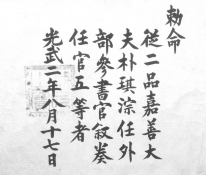 勅命
從二品嘉善大
夫朴琪淙任外
部參書官敘奏
任官五等者
光武二年八月十七日